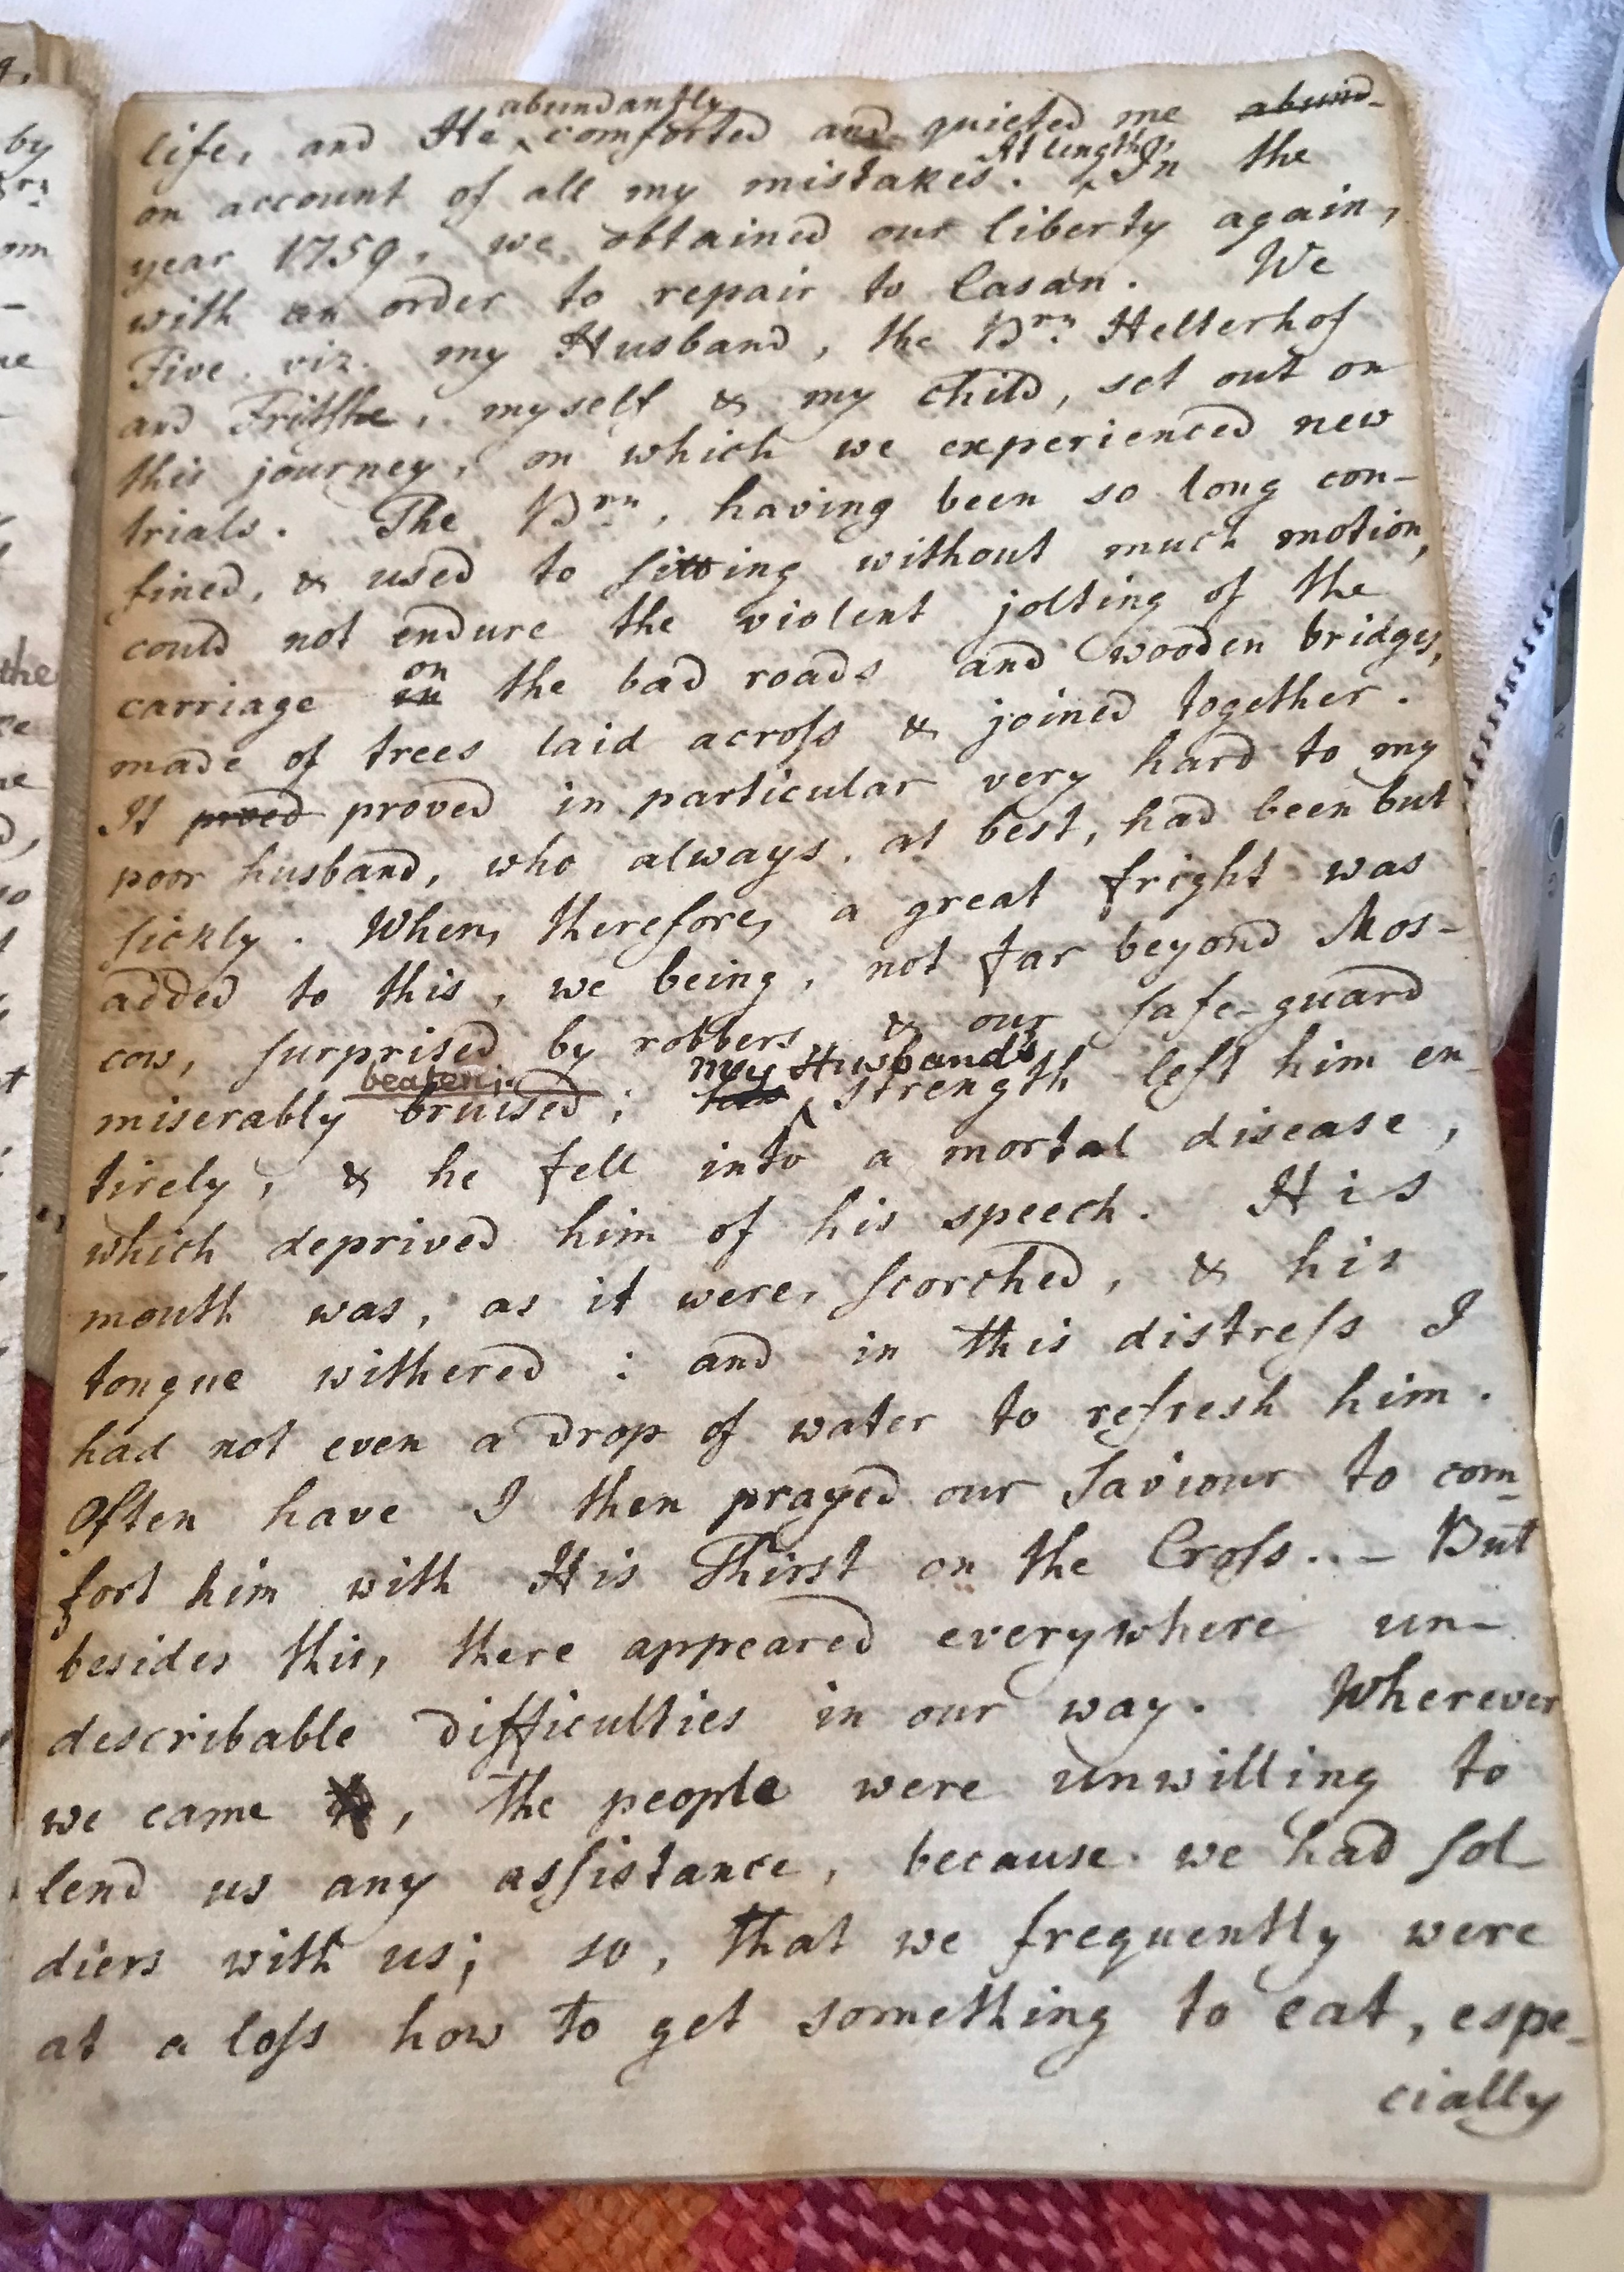 life, and He abundantly comforted and quieted me abund-
on account of all my mistakes. At length, In the
year 1759, we obtained our liberty again,
with an order to repair to Casan. We
Five, viz. my Husband, the Brn. Helterhof
and Fritshe, myself & my child, set out on
this journey, on which we experienced new
trials. The Brn, having been so long con-
fined, & used to sitting without much motion,
could not endure the violent jolting of the
carriage in on the bad roads and wooden bridges,
made of trees laid across & joined together.
It proed proved in particular very hard to my
poor husband, who always, at best, had been but
sickly. When, therefore, a great fright was
added to this, we being, not far beyond Mos-
cow, surprised by robbers, & our safe-guard
miserably beaten; bruised; my Husband's strength left him en-
tirely, & he fell into a mortal disease,
which deprived him of his speech. His
mouth was, as it were, scorched, & his
tongue withered: and in this distress I
had not even a drop of water to refresh him.
Often have I then prayed our Saviour to com-
fort him with His Thirst on the Cross. – But
besides this, there appeared everywhere un-
describable difficulties in our way. Wherever
we came, the people were unwilling to
lend us any assistance, because we had sol-
diers with us; so, that we frequently were
at a loss how to get something to eat, espe-
cially